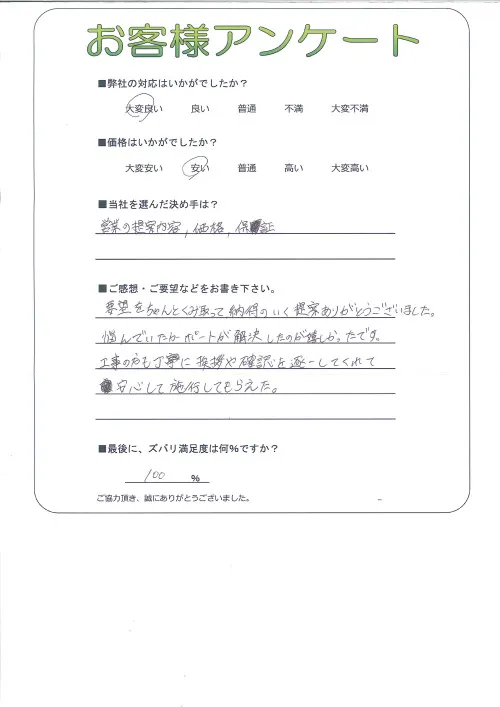 お客様アンケート
■弊社の対応はいかがでしたか？
大変良い 良い 普通 不満 大変不満
■価格はいかがでしたか？
大変安い 安い 普通 高い 大変高い
■当社を選んだ決め手は？
営業の提案内容，価格，保証
■ご感想・ご要望などをお書き下さい。
要望をちゃんとくみ取って納得のいく提案ありがとうございました。
悩んでいたカーポートが解決したのが嬉しかったです。
工事の方も丁寧に挨拶や確認を逐一してくれて
安心して施行してもらえた。
■最後に、ズバリ満足度は何％ですか？
100 ％
ご協力頂き、誠にありがとうございました。